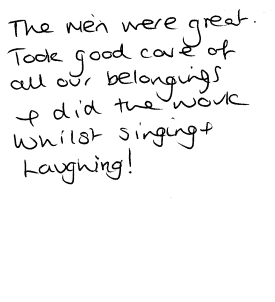 The men were great.
Took good care of
all our belongings
& did the work
Whilst singing &
Laughing!